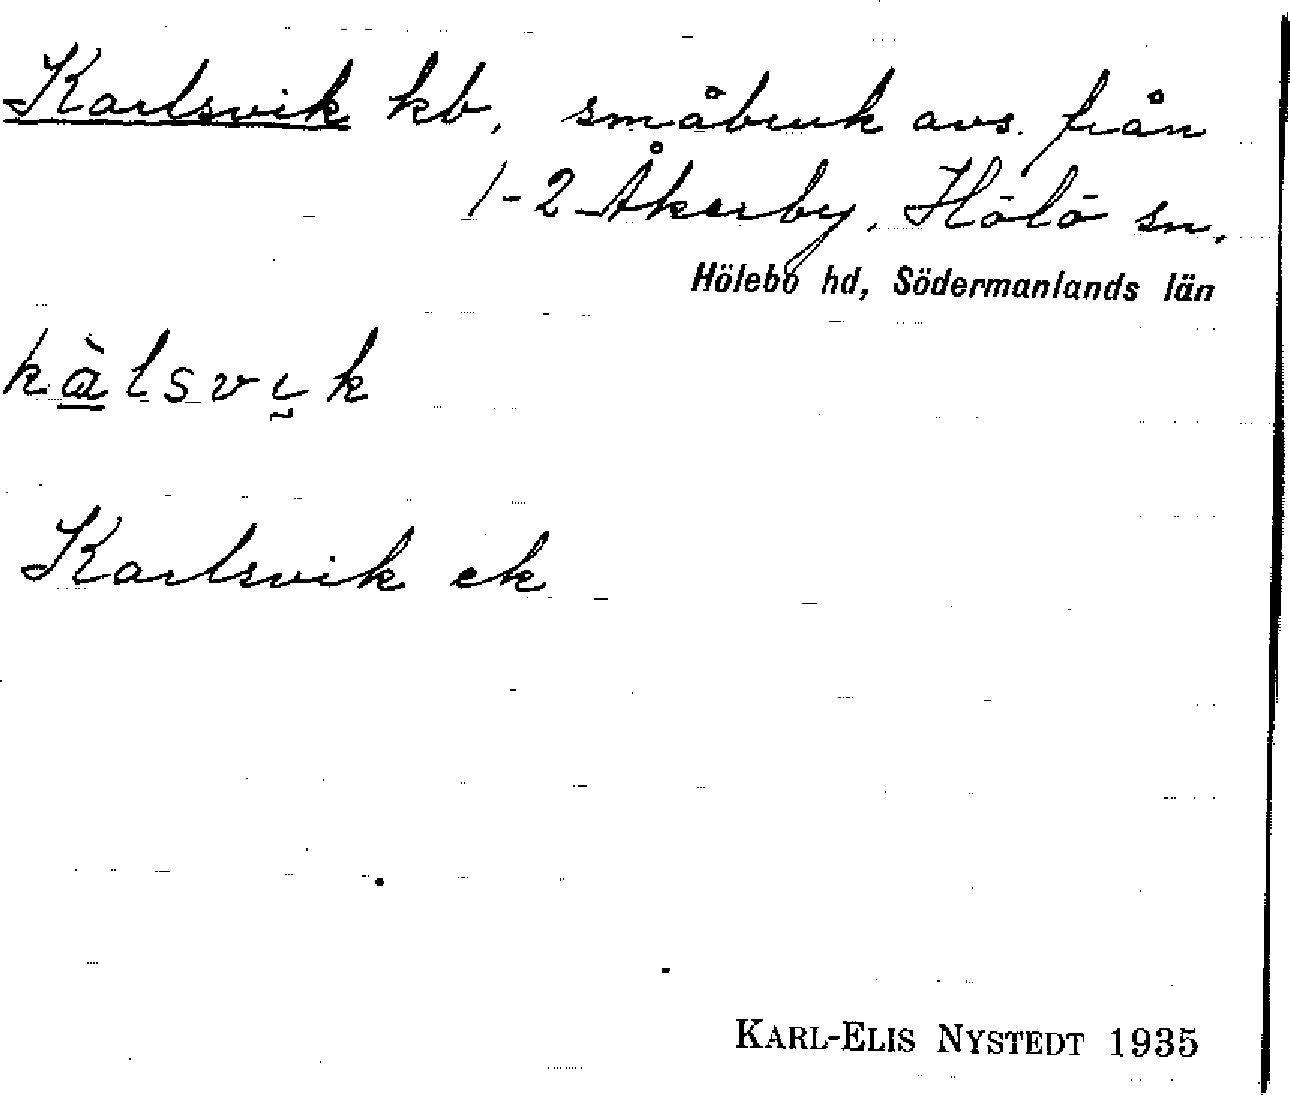 Karlsvik kb, småbruk avs. från
1-2 Åkerby, Hölö sn.
Hölebo hd, Södermanlands län
kàlsvik
Karlsvik ek
KARL-ELIS NYSTEDT 1935